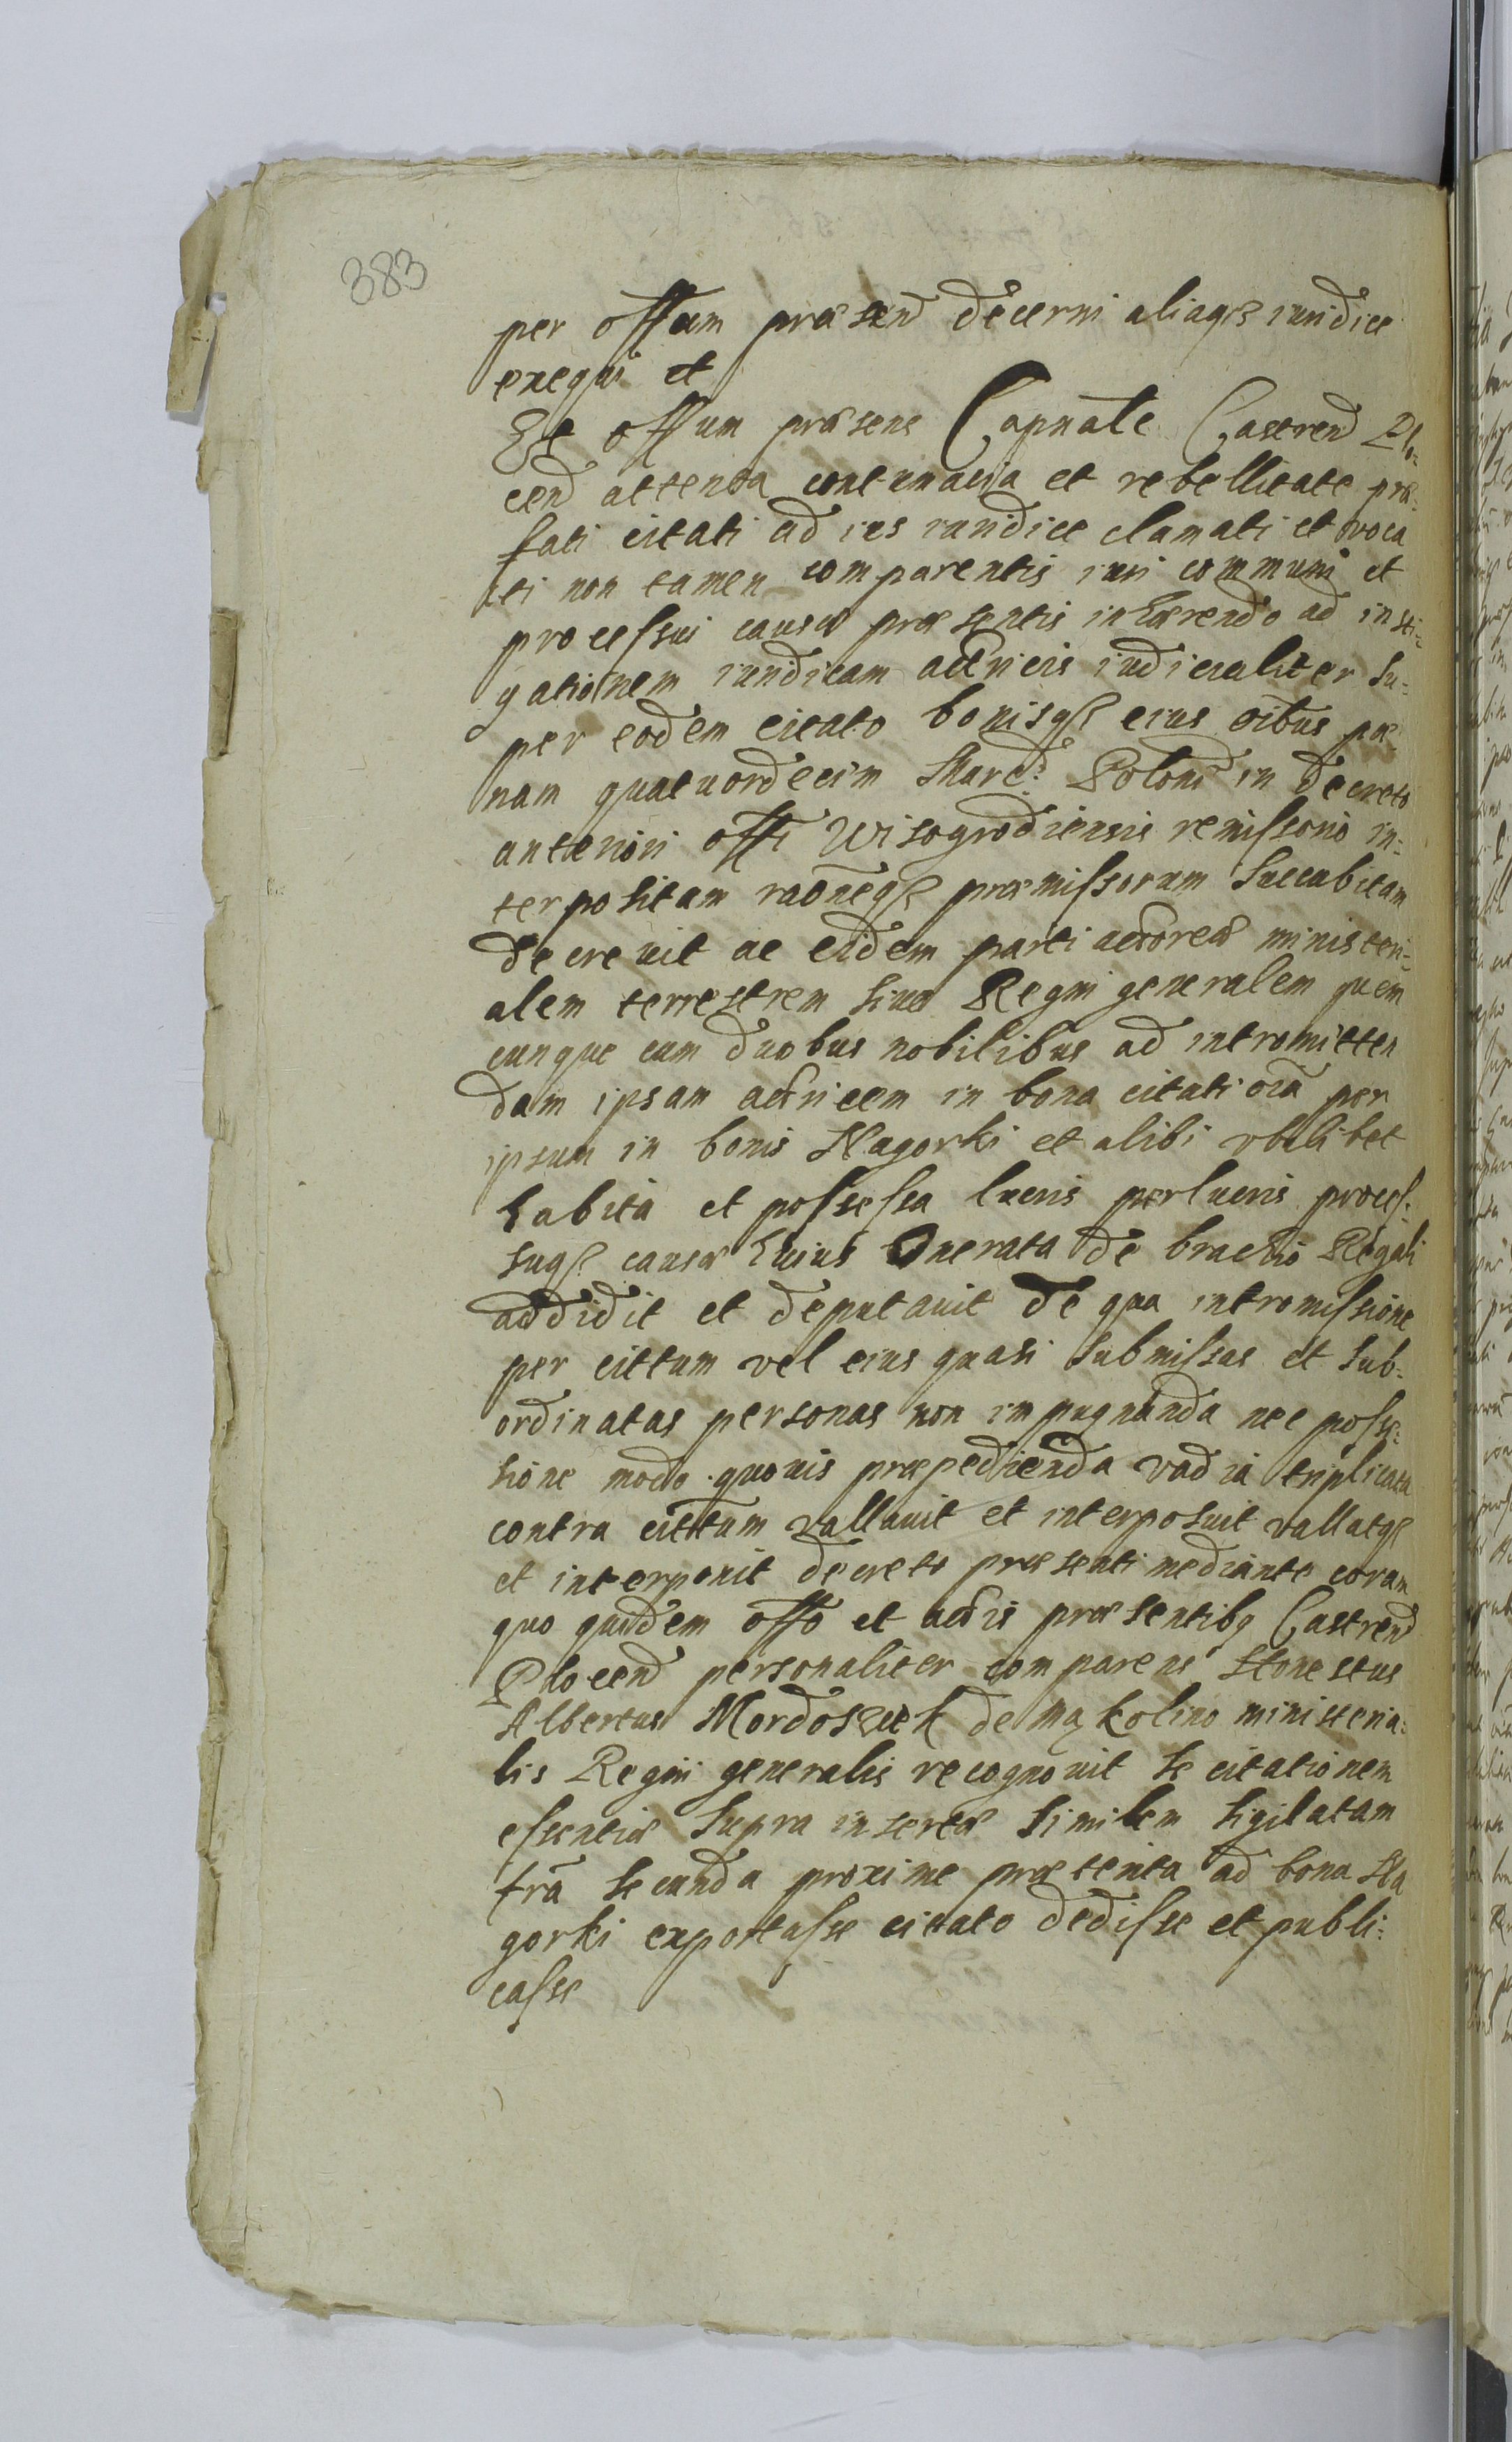 383
per offum præsend decerni aliaqs iuridice
exequi et
Et offum præsens Capnale Castrend Plo-
cend attenta contumacia et rebellitate præ-
fati citati ad ius iuridice clamati et voca
ti non tamen comparentis iuri communi et
processui causæ præsentis inhærendo ad insti-
gationem iuridicam actricis iudicialiter su-
per eodem citato bonisqs eius oibus pœ-
nam quatuordecim Marcr Polond in decreto
anteriori offi Wisogrodiensis remissorio in-
terpositam raoneqs præmissorum succubitam
decrevit ac eidem parti actoreæ ministeri-
alem terrestrem sive Regni generalem quem
cunque cum duobus nobilibus ad intromitten
dam ipsam actricem in bona citati oia per
ipsum in bonis Nagorki et alibi vbilibet
habita et possessa lucris perlucris proces-
suqs causæ huius Onerata de brachio Regali
addidit et deputavit De qua intromissione
per cittum vel eius quasi submissas et sub-
ordinatas personas non impugnanda nec posse-
sione modo quovis præpedienda vadia triplicata
contra cittum vallavit et interposuit vallatqs
et interponit decreto præsenti mediante coram
quo quidem offo et actis præsentibq Castrend
Plocend personaliter comparens Honestus
Albertus Mordoszek de Mąkolino ministeria-
lis Regni generalis recognovit se citationem
essentiæ supra insertæ similem sigilatam
fria secunda proxime præterita ad bona Na
gorki exportasse citato dedisse et publi-
casse